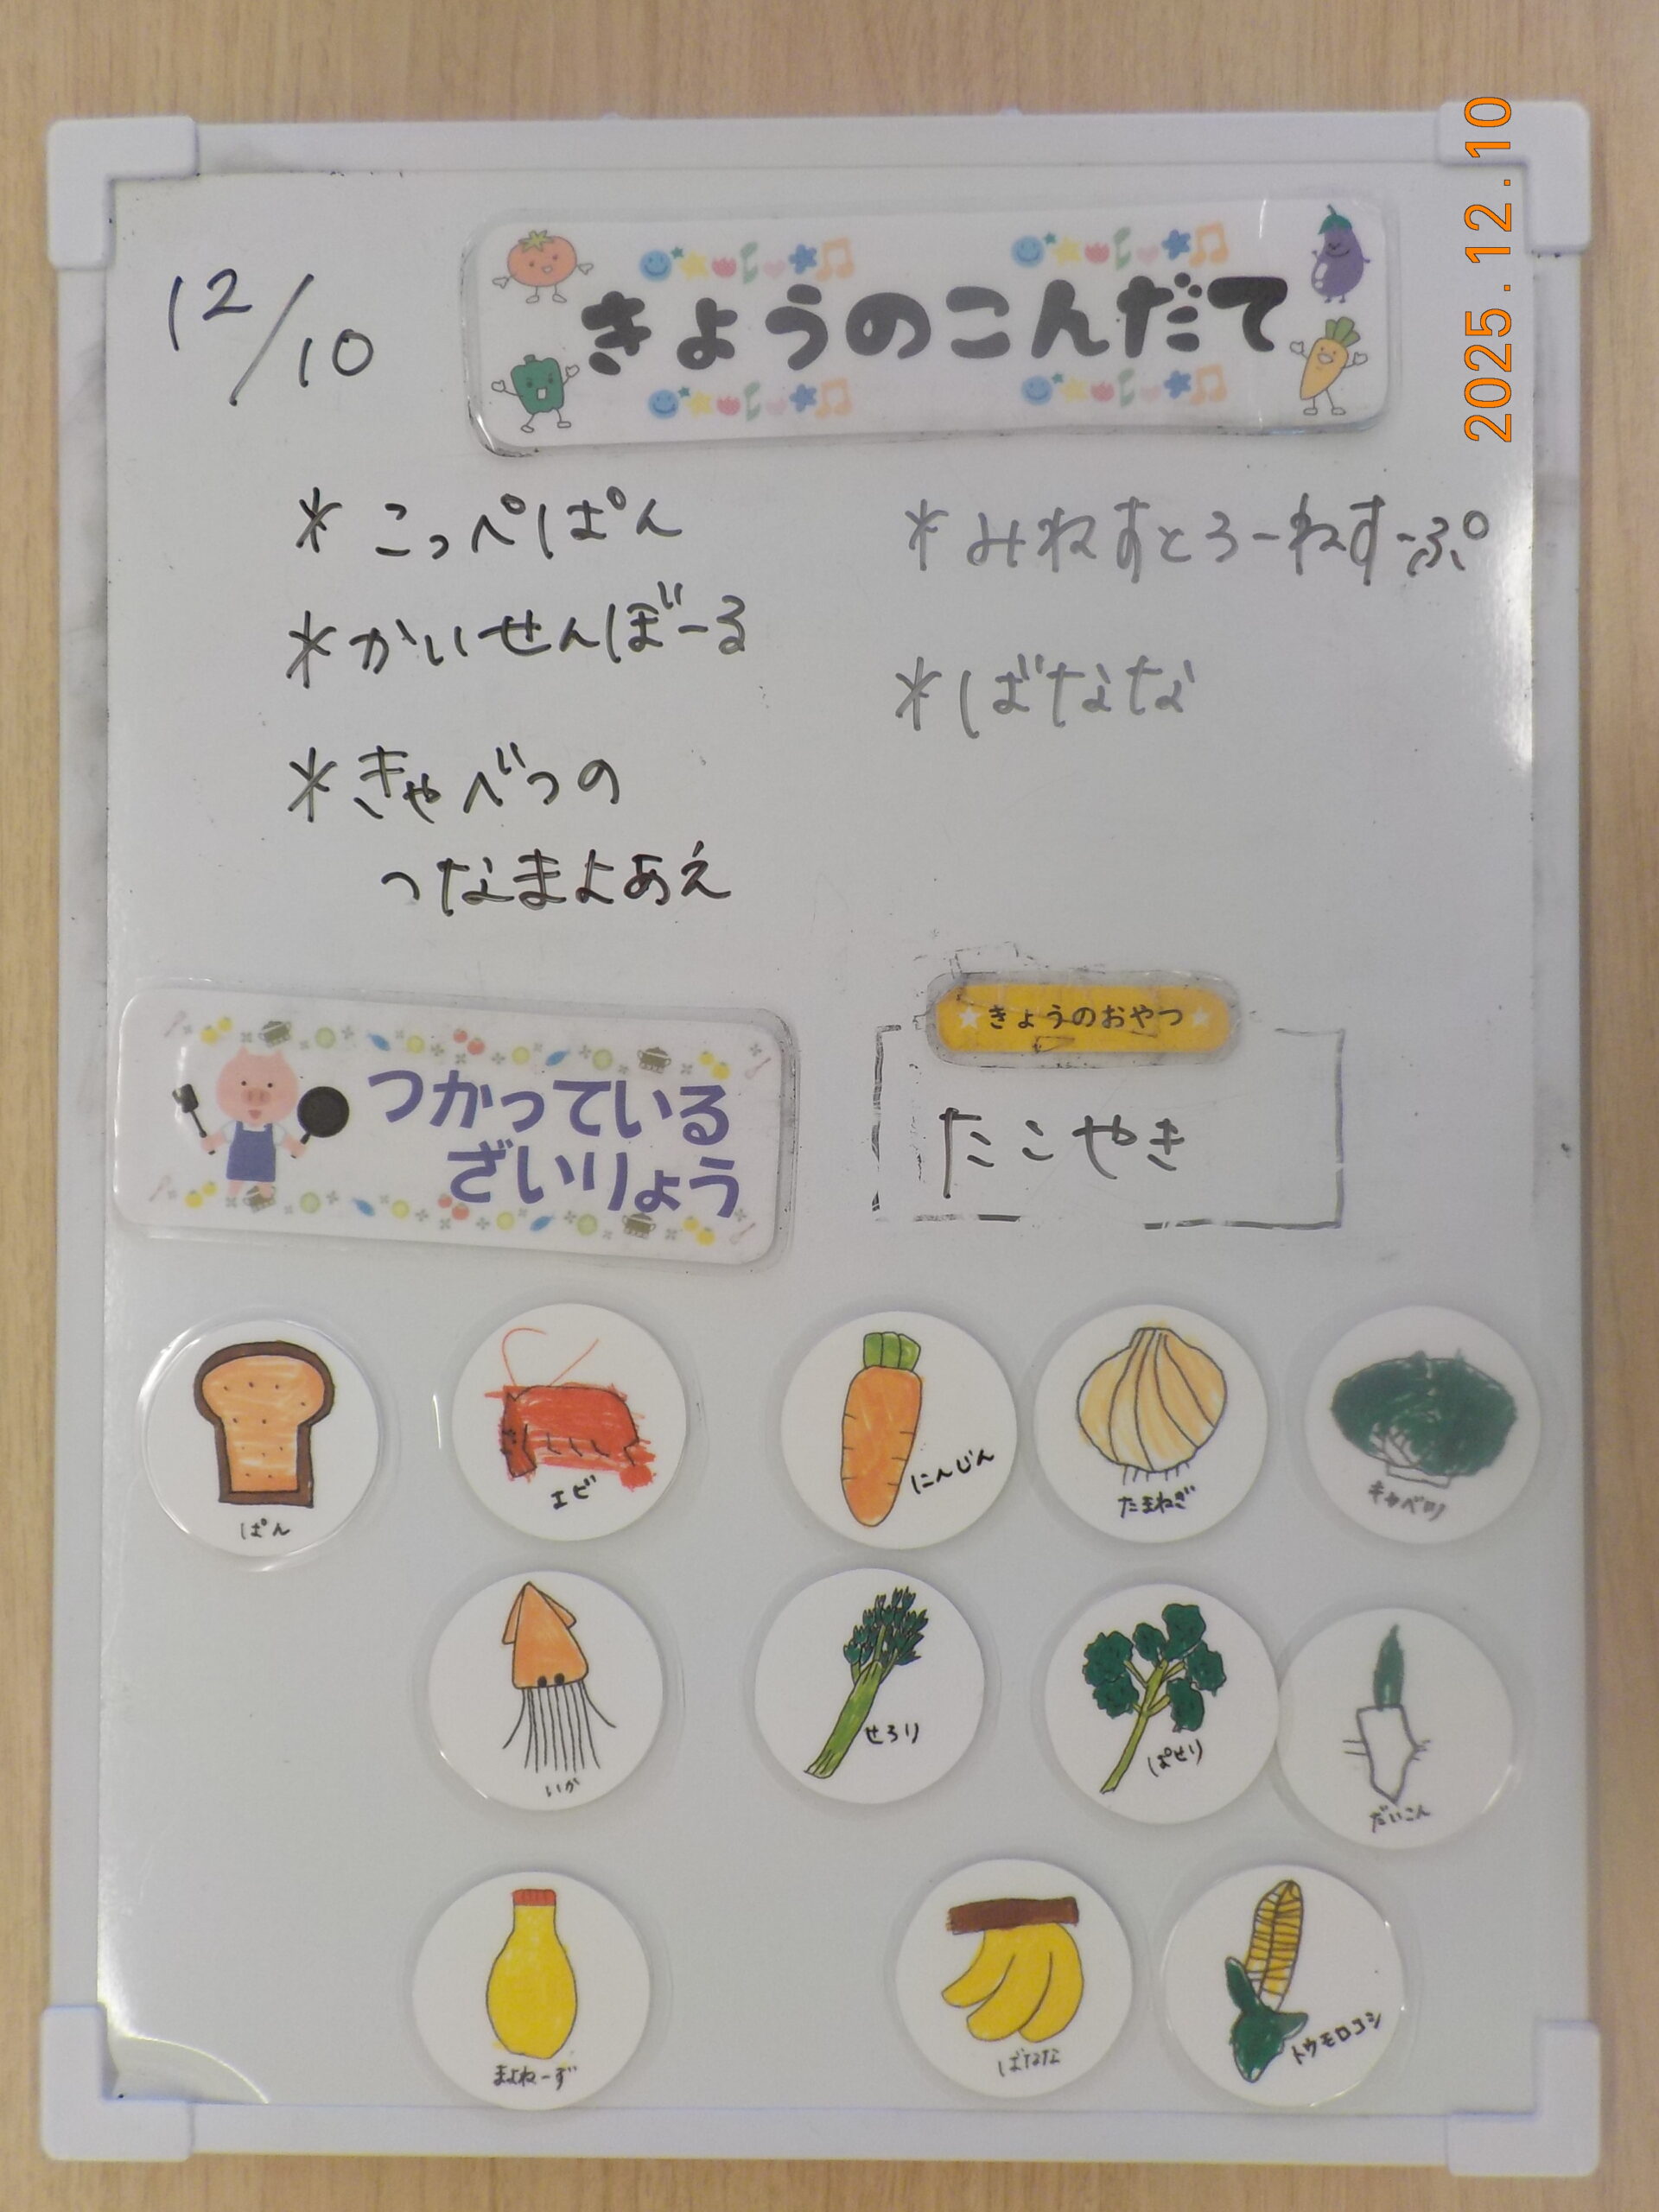 2025.12.10
12/10
きょうのこんだて
* こっぺぱん
* かいせんぼーる
* きゃべつの
つなまよあえ
* みねすとろーねすーぷ
* ばなな
きょうのおやつ
たこやき
つかっている
ざいりょう
ぱん
エビ
にんじん
たまねぎ
キャベツ
いか
せろり
ぱせり
だいこん
まよねーず
ばなな
トウモロコシ